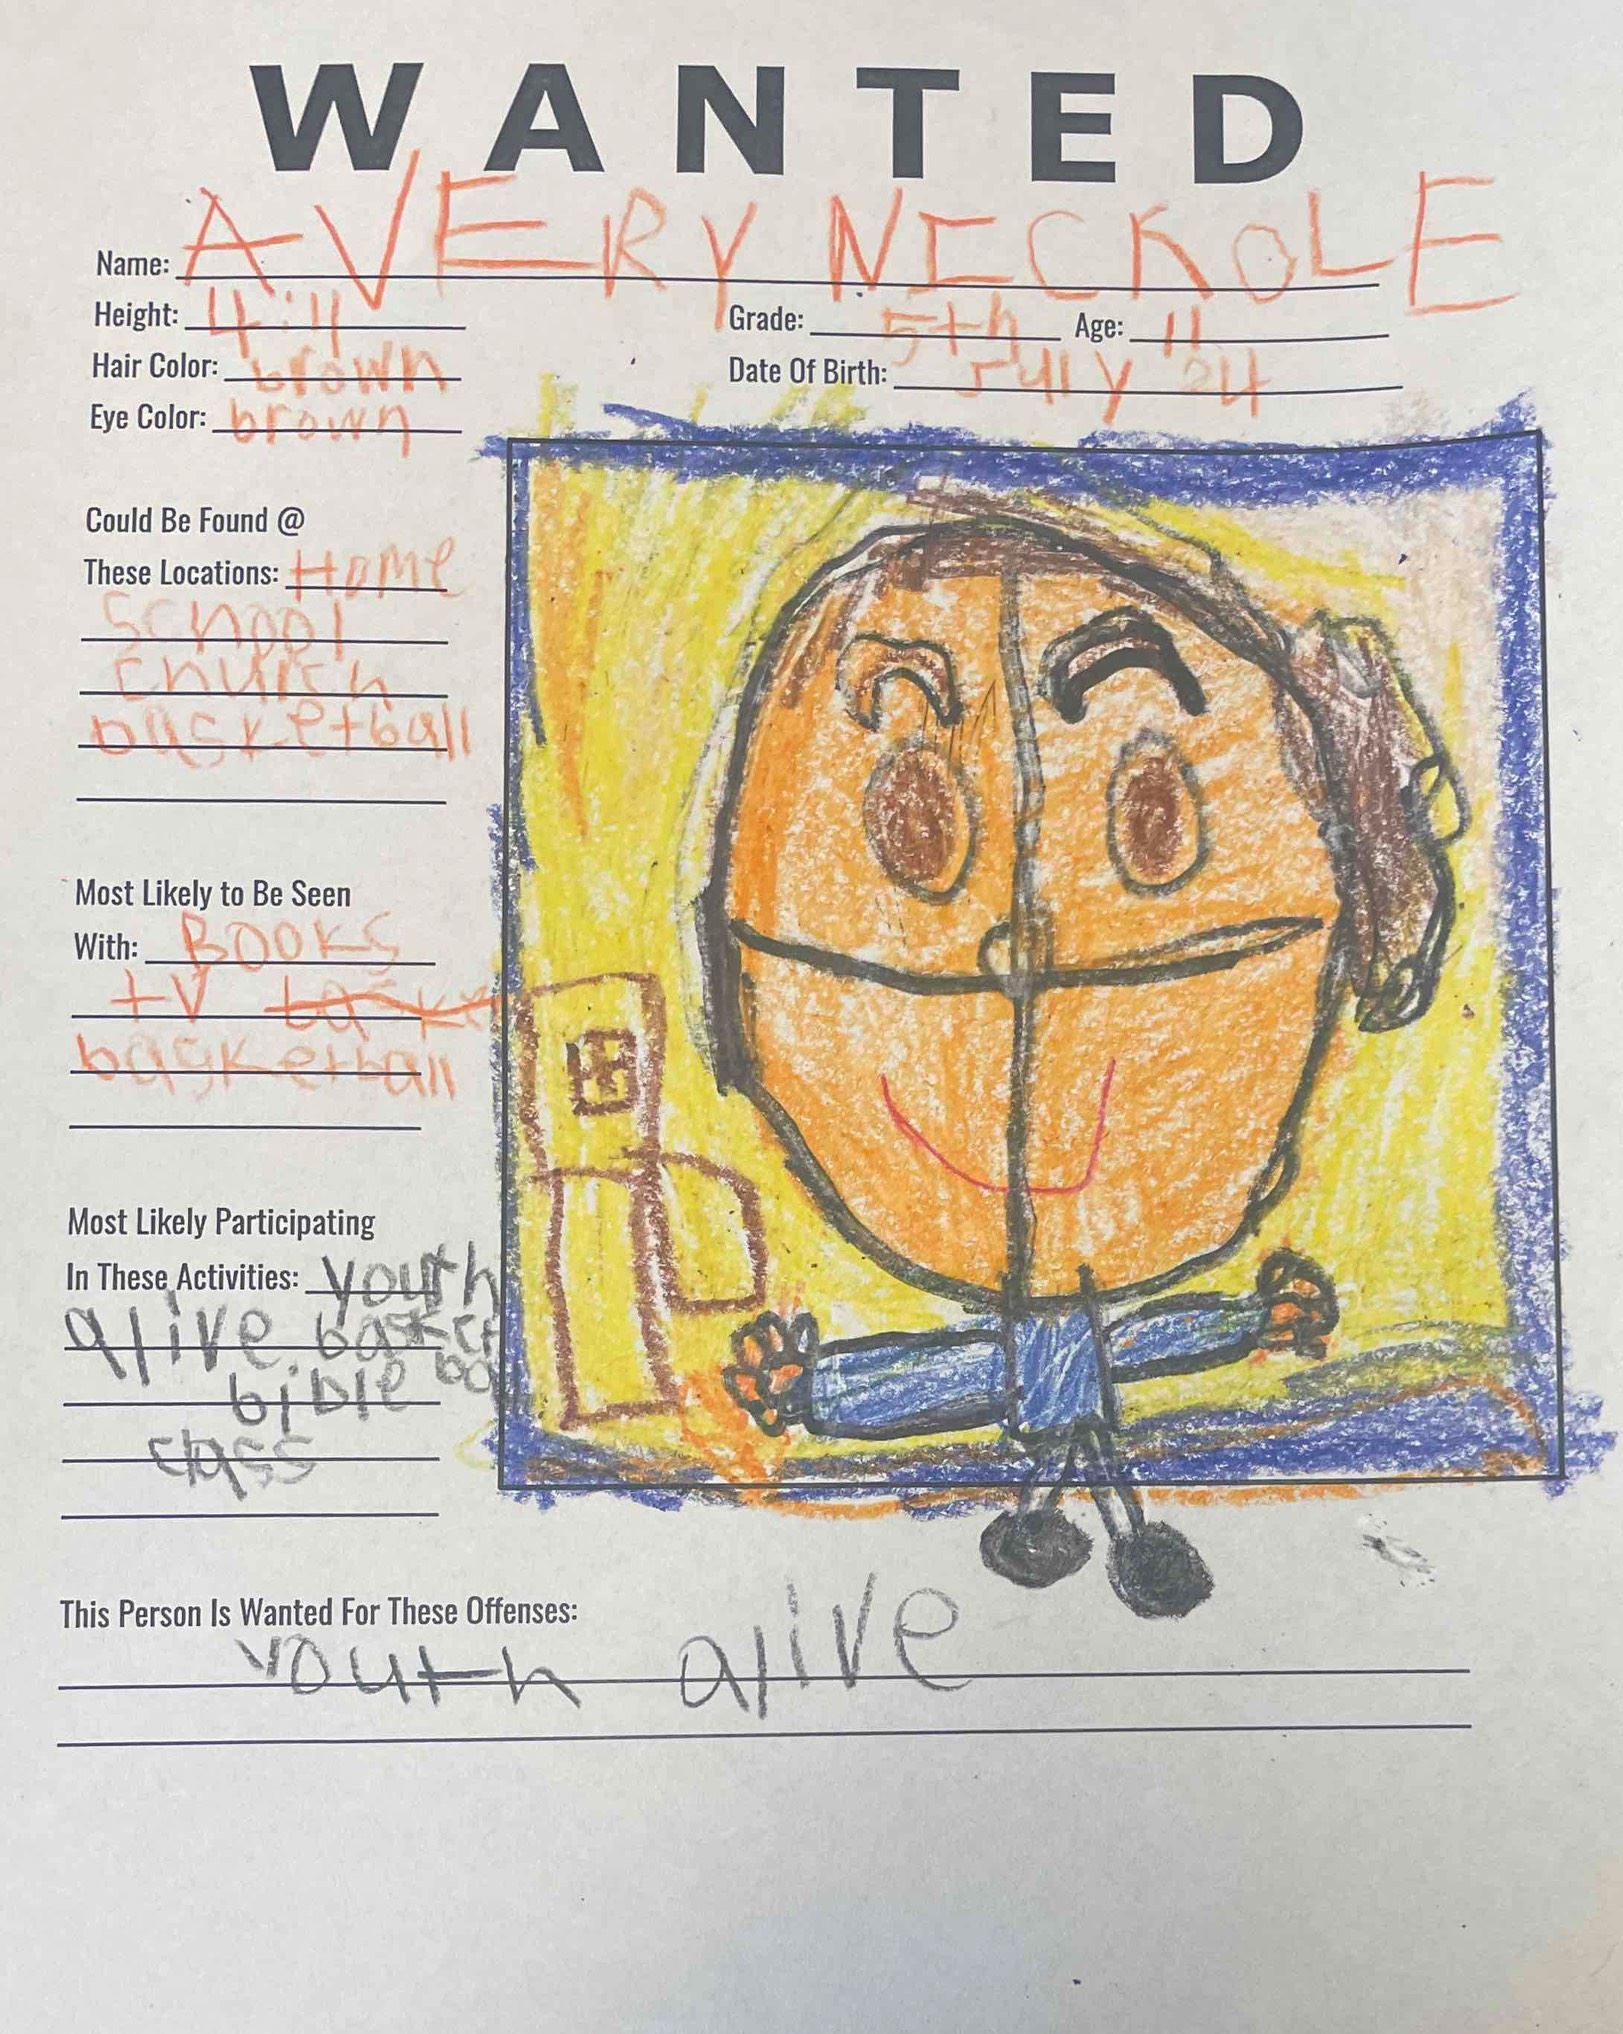 WANTED
Name: AVERY NICKOLE
Height: 4'11 Grade: 5th Age: 11
Hair Color: brown Date Of Birth: July 24
Eye Color: brown
Could Be Found @
These Locations: HOME
School
church
basketball
Most Likely to Be Seen
With: BOOKS
tv baske
basketball
Most Likely Participating
In These Activities: youth
alive basket
bible ba
class
This Person Is Wanted For These Offenses:
youth alive